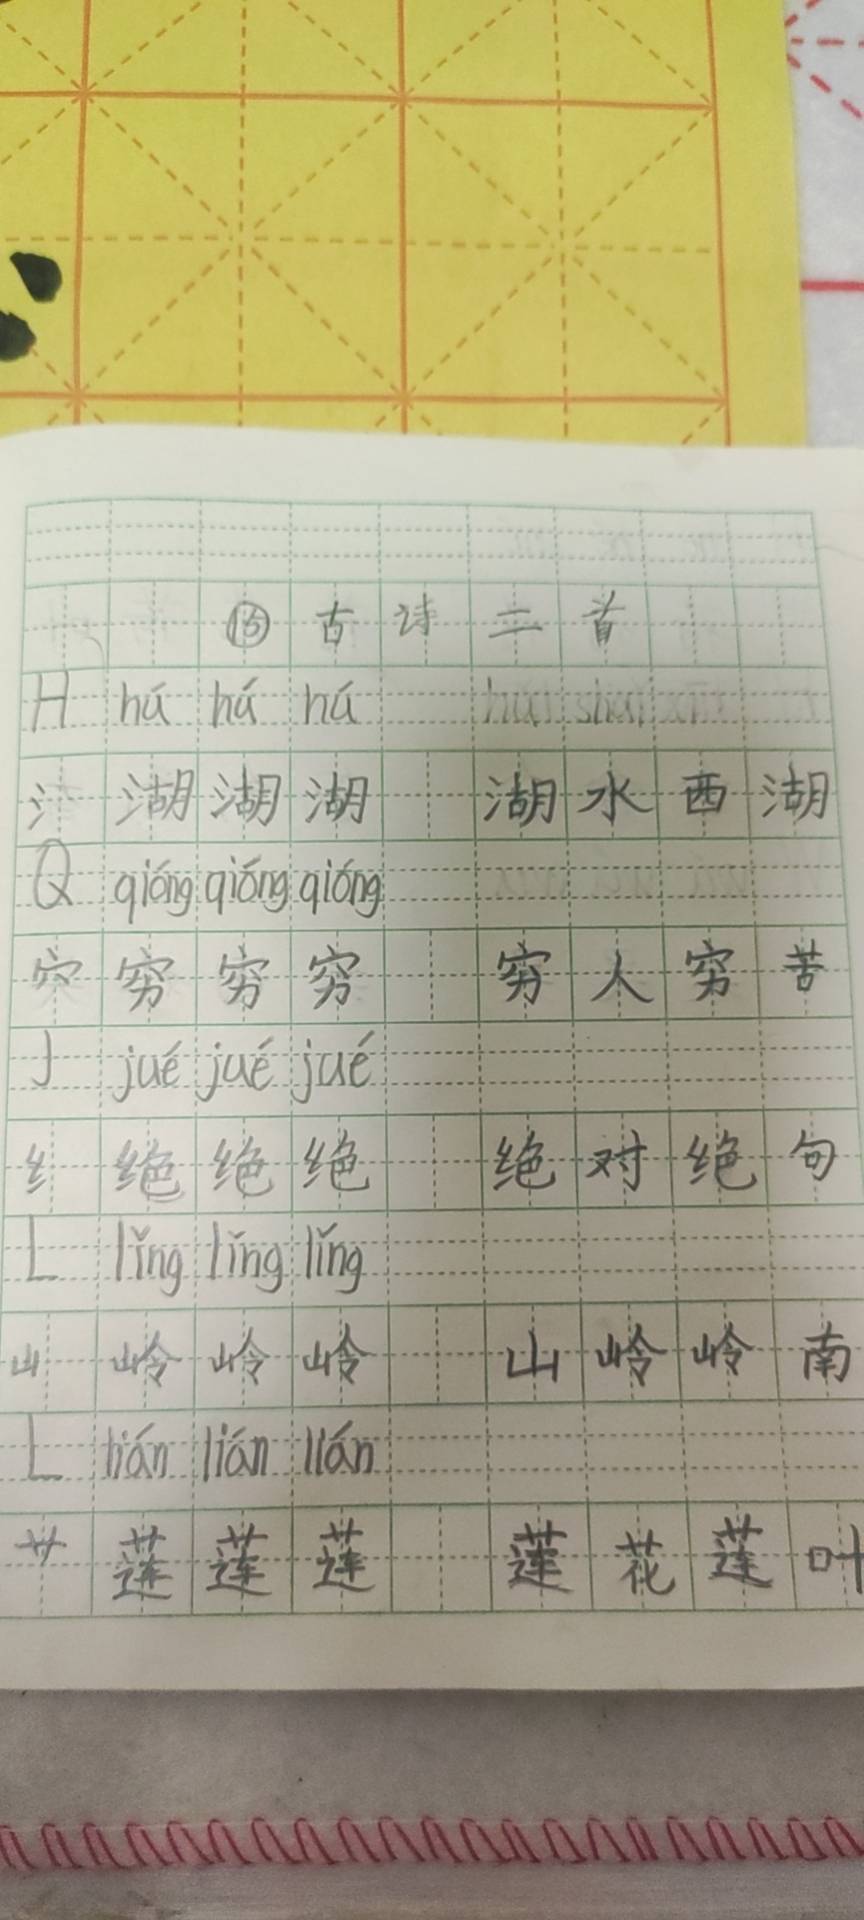 ⑮ 古诗二首
H hú hú hú
氵 湖 湖 湖 湖水 西湖
Q qióng qióng qióng
穴 穷 穷 穷 穷人 穷苦
J jué jué jué
纟 绝 绝 绝 绝对 绝句
L lǐng lǐng lǐng
山 岭 岭 岭 山岭 岭南
L lián lián lián
艹 莲 莲 莲 莲花 莲叶